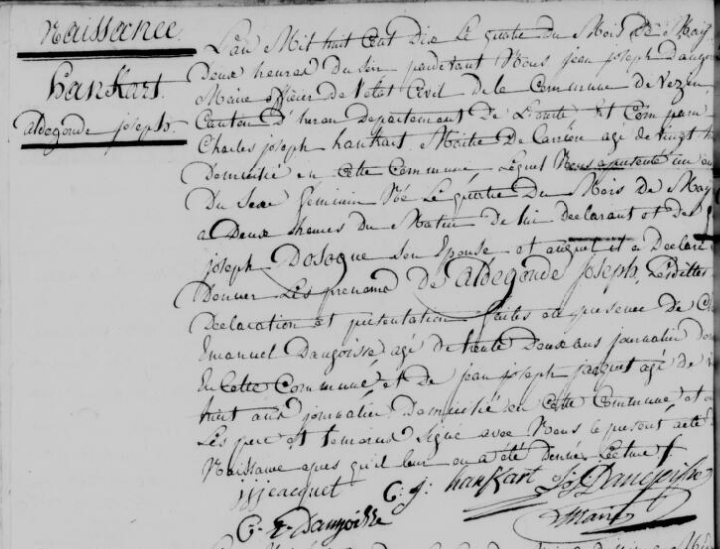 Naissance
hanKart
aldegonde joseph.
L'an Mil huit Cent Dix Le quatre du Mois De May
Deux heures Du soir pardevant Nous jean joseph Daugoi
Maire officier De l'etat Civil De le Commune de Vezin
Canton D' Département De et Compar
Charles joseph hanKart Maitre De Carrier agé de vingt h
Domicilié en Cette Commune, Lequel Nous a presenté un en
Du Sexe feminin Né Le quatre Du Mois De May
a Deux heures Du Matin de lui declarant et de
joseph Dosogne son Epouse et auquel il a Declaré
Donner Les prenoms De aldegonde joseph, Lesdittes
Declaration et présentation faites en presence De C
Emanuel Daugoisse agé de trente Deux ans journalier Do
En Cette Commune et De jean joseph jacquet agé De
huit ans journalier Domicilié en Cette Commune et
Les pere et temoins Signé avec Nous le présent acte
Naissance apres qu'il leur en a été Donnée Lecture
jjjacquet C. j. hanKart Daugoisse
C. E. Daugoisse Maire